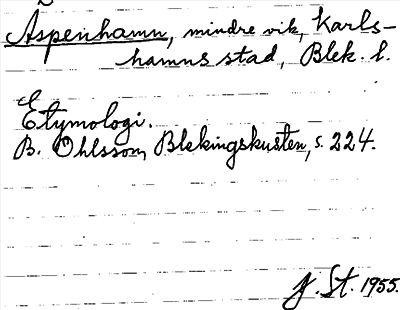 Äspenhamn, mindre vik, Karls-
hamns stad, Blek. l.
Etymologi.
B. Ohlsson, Blekingskusten, s. 224.
J. St. 1955.